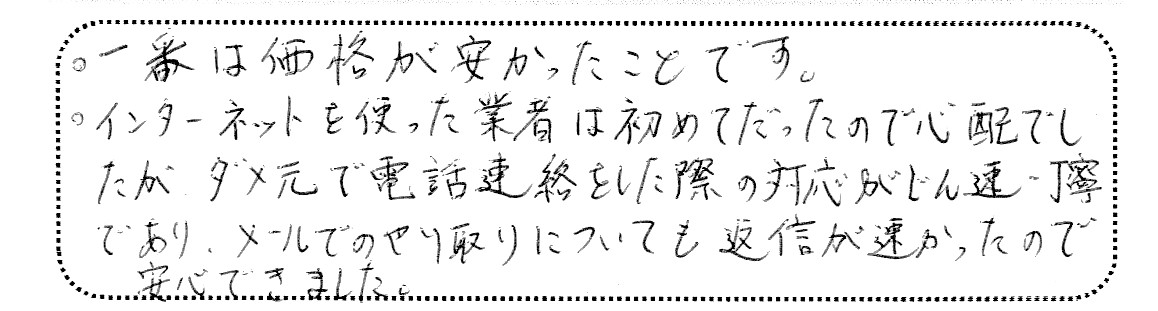 。一番は価格が安かったことです。
。インターネットを使った業者は初めてだったので心配でし
たが、ダメ元で電話連絡をした際の対応がじん速・丁寧
であり、メールでのやり取りについても返信が速かったので
安心できました。